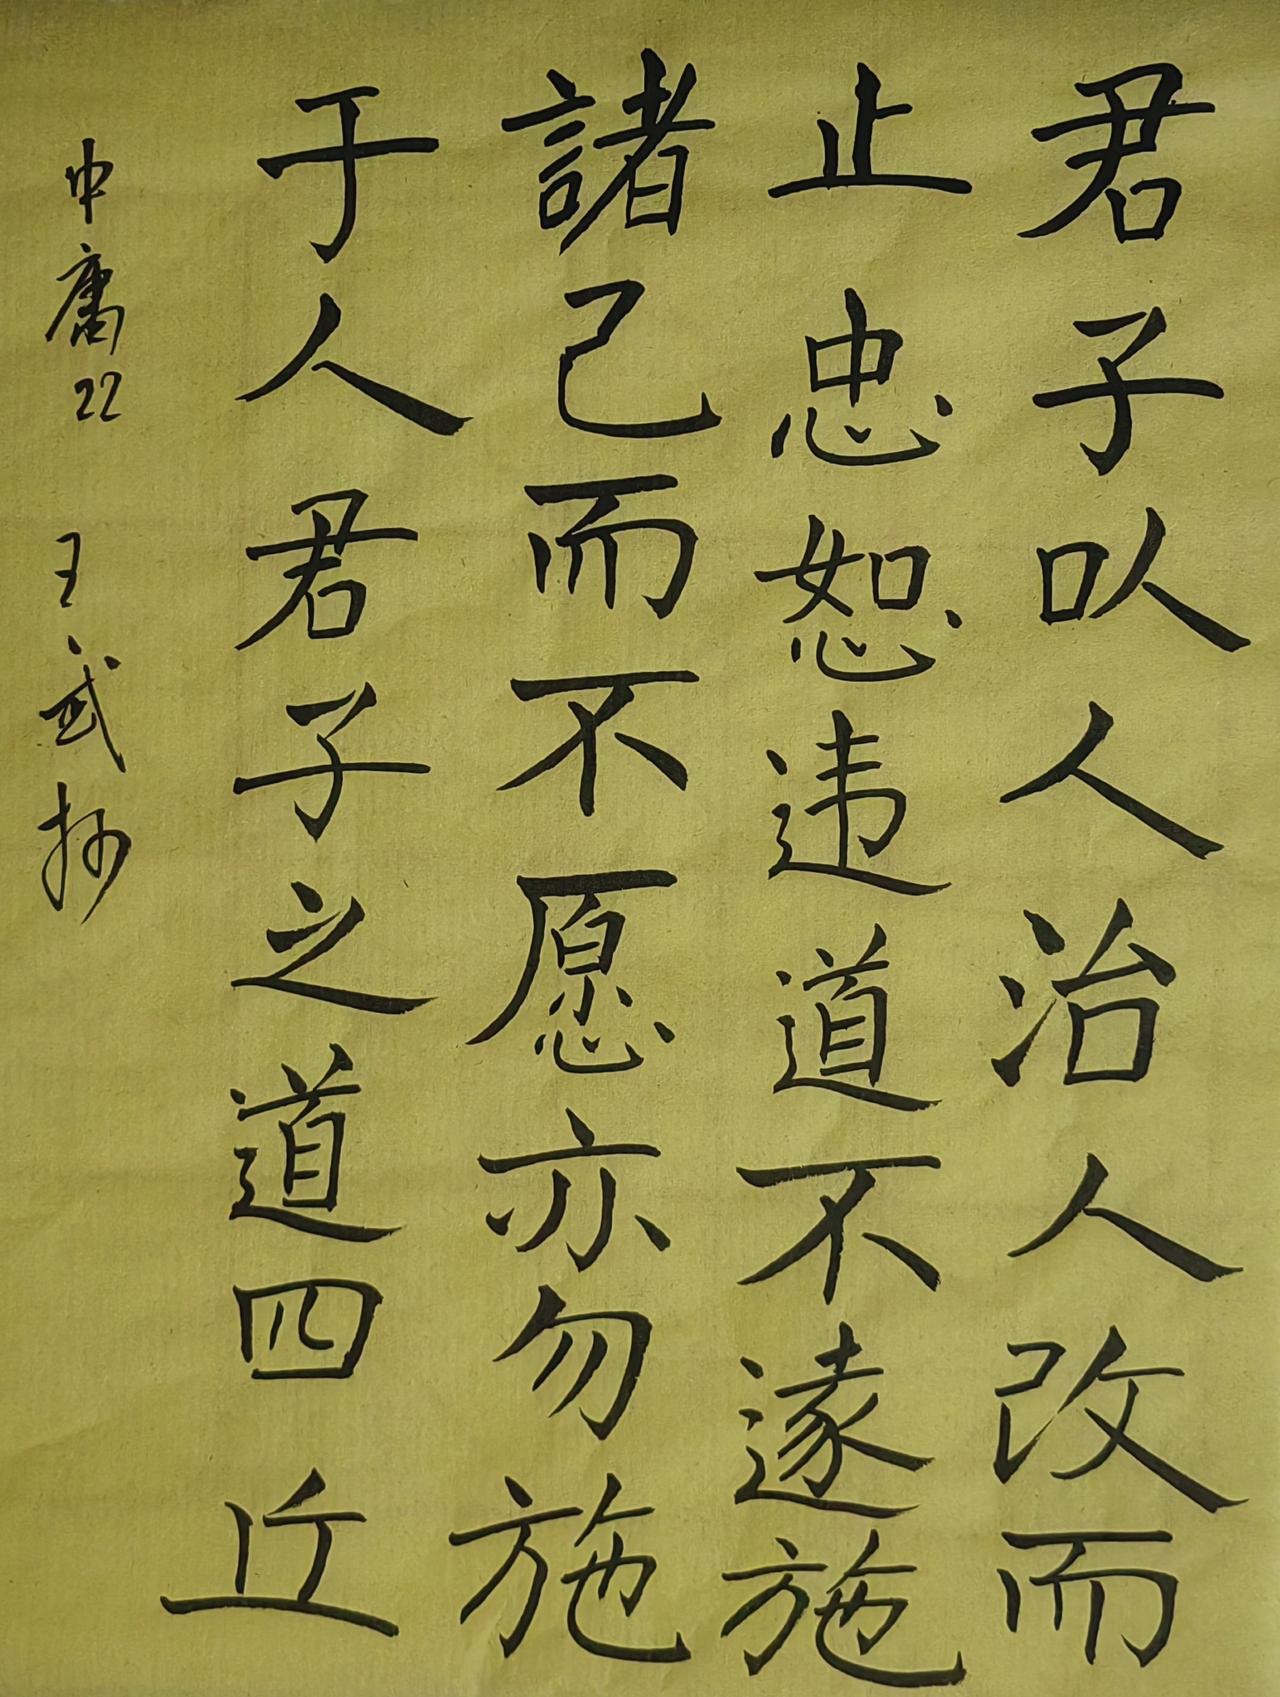 君子以人治人改而
止忠恕违道不遂施
諸己而不愿亦勿施
于人君子之道四丘
中庸22 王武抄